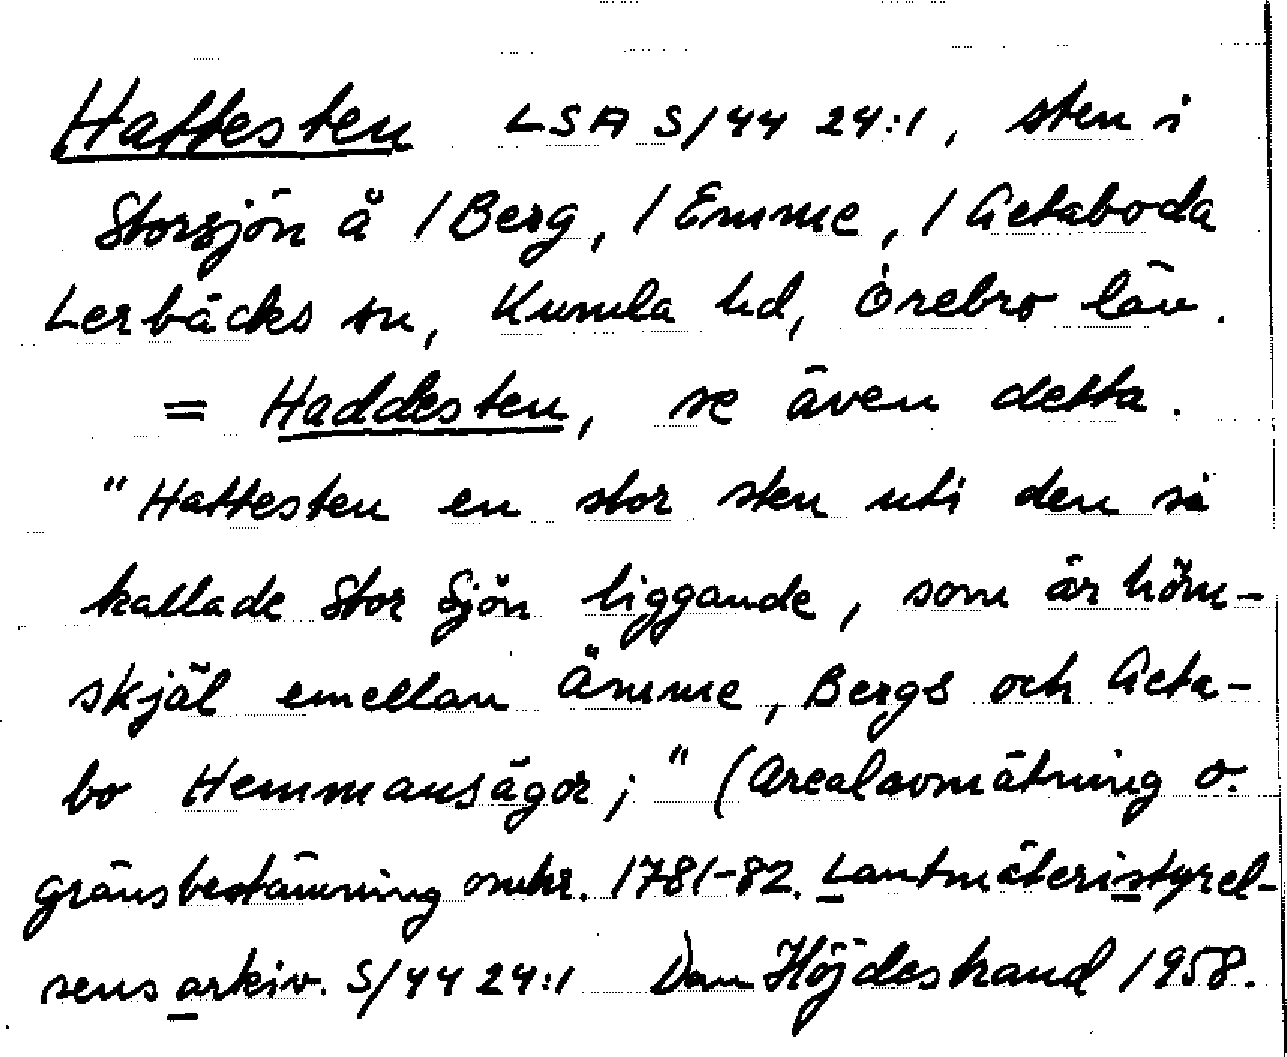 Hattesten LSA S/44 24:1, sten i
Storsjön å /Berg, /Emme, /Actaboda
Lerbäcks sn, Kumla hd, Örebro län.
= Haddesten, se även detta.
"Hattesten en stor sten uti den så
kallade Stor Sjön liggande, som är hörn-
skjäl emellan Ämme, Bergs och Acta-
bo Hemmansägor;" (Arealavmätning o.
gränsbestämning omkr. 1781-82. Lantmäteristyrel-
sens arkiv. S/44 24:1 Dan Höjdestrand 1958.